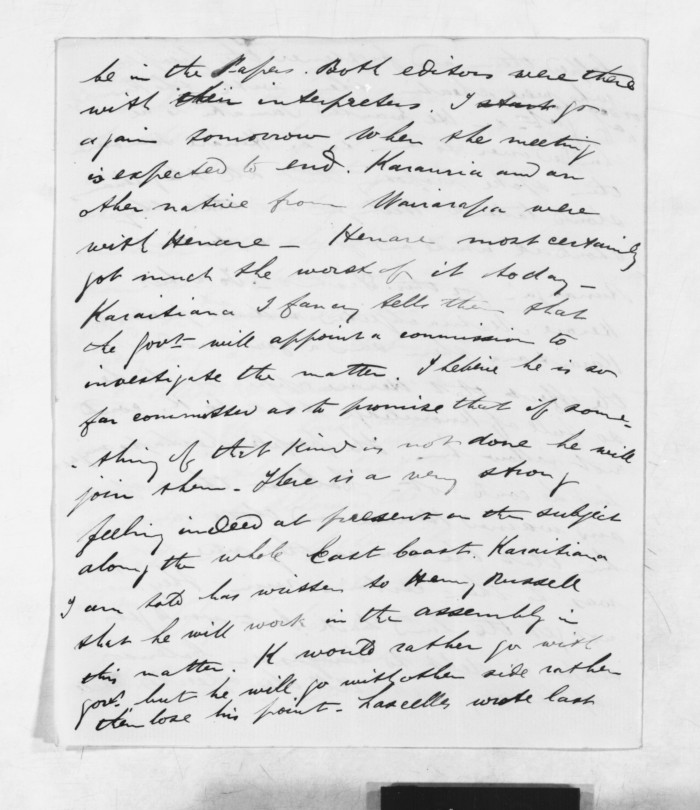 be in the Papers. Both editors were there
with their interpreters. I start go
again tomorrow, when the meeting
is expected to end. Karauria and an
other native from Wairarapa were
with Henare - Henare most certainly
got much the worst of it today -
Karaitiana I fancy tells them that
the Govt. will appoint a commission to
investigate the matter. I believe he is so
far committed as to promise that if some-
- thing of that kind is not done he will
join them - There is a very strong
feeling indeed at present on the subject
along the whole East Coast. Karaitiana
I am told has written to Henry Russell
that he will work in the assembly in
this matter. K would rather go with
govt. but he will go with other side rather
then lose his point - Lascelles wrote last